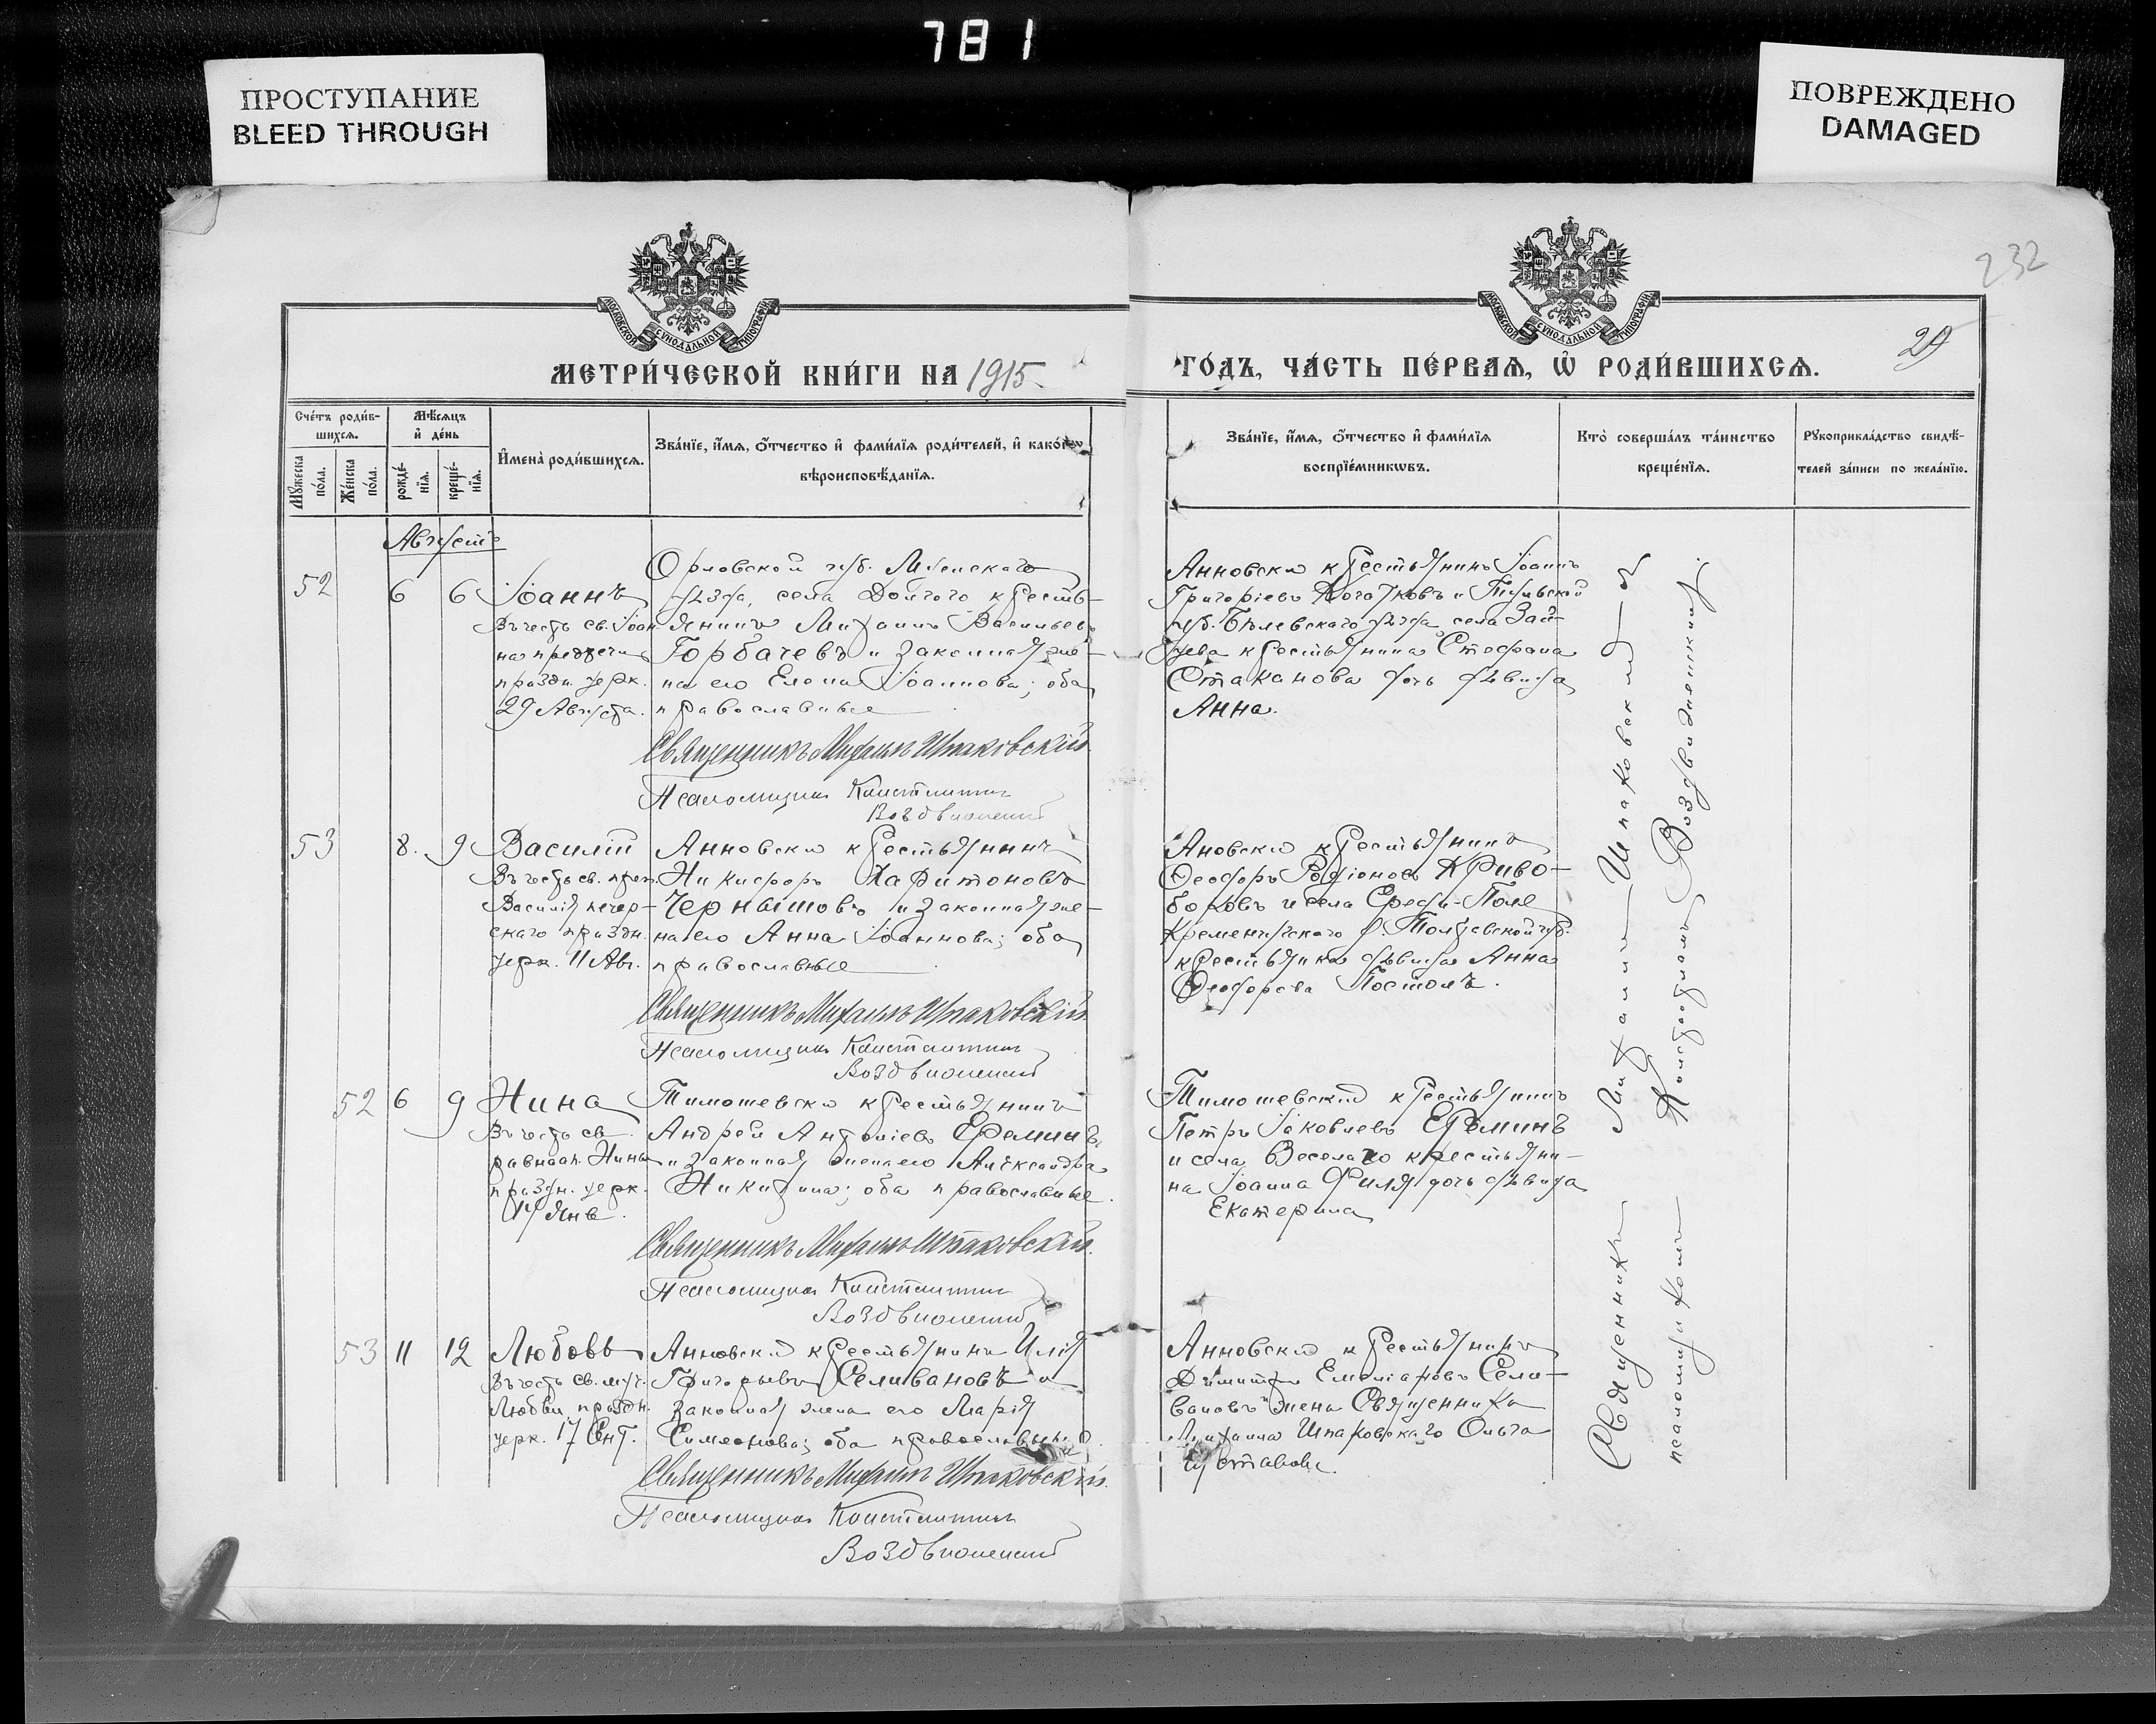 781
ПРОСТУПАНИЕ
BLEED THROUGH
ПОВРЕЖДЕНО
DAMAGED
232
29
МОСКОВСКОЙ СѴНОДАЛЬНОЙ ТИПОГРАФІИ
МОСКОВСКОЙ СѴНОДАЛЬНОЙ ТИПОГРАФІИ
МЕТРИ́ЧЕСКОЙ КНИ́ГИ НА 1915
ГО́ДЪ, ЧА́СТЬ ПЕ́РВАѦ, Ѡ҆ РОДИ́ВШИХСѦ.
Сче́тъ роди́в-
шихсѧ.
Мꙋ́жеска по́ла.
Же́нска по́ла.
Мѣ́сѧцъ
и҆ де́нь
рожде́-
нїѧ.
креще́-
нїѧ.
И҆мена̀ роди́вшихсѧ.
Зва́нїе, и҆́мѧ, ѻ҆́тчество и҆ фами́лїѧ роди́телей, и҆ како́гѡ
вѣроисповѣ́данїѧ.
Зва́нїе, и҆́мѧ, ѻ҆́тчество и҆ фами́лїѧ
воспрїе́мникѡвъ.
Кто̀ соверша́лъ та́инство
креще́нїѧ.
Рꙋкоприкла́дство свидѣ́-
телей за́писи по жела́нїю.
Августъ
52 6 6 Іоаннъ
Въ честь св. Іоан-
на предтечи
праздн. церк.
29 Августа.
Орловской губ. Мценскаго
уѣзда, села Долгого кресть-
янинъ Михаилъ Васильевъ
Горбачевъ и законная же-
на его Елена Іоаннова; оба
православные
Священникъ Михаилъ Шпаковскій
Псаломщикъ Константинъ
Воздвиженскій
Анновскій крестьянинъ Іоаннъ
Григоріевъ и Тульской
губ. Бѣлевскаго уѣзда села Зай-
цева крестьянина Стефана
Стаканова дочь дѣвица
Анна.
53 8. 9 Василій
Въ честь св. преп.
Василія печер-
скаго праздн.
церк. 11 Авг.
Анновскій крестьянинъ
Никифоръ Харитоновъ
Чернышовъ и законная же-
на его Анна Іоаннова; оба
православные
Священникъ Михаилъ Шпаковскій
Псаломщикъ Константинъ
Воздвиженскій
Ановскій крестьянинъ
Ѳеодоръ Родіоновъ Криво-
боковъ и села Среди-Поле
Кременчугскаго у. Полтавской губ.
крестьянка дѣвица Анна
Ѳеодорова Постолъ.
52 6 9 Нина
Въ честь св.
равноап. Нины
праздн. церк.
14 Янв.
Тимошевскій крестьянинъ
Андрей Антоніевъ Ереминъ
и законная жена его Александра
Никитина; оба православные.
Священникъ Михаилъ Шпаковскій
Псаломщикъ Константинъ
Воздвиженскій
Тимошевскій крестьянинъ
Петръ Іаковлевъ Ереминъ
и села Веселаго крестьяни-
на Іоанна Филя дочь дѣвица
Екатерина
53 11 12 Любовь
Въ честь св. муч.
Любви праздн.
церк. 17 Сент.
Анновскій крестьянинъ Илія
Григорьевъ Селивановъ и
законная жена его Марія
Симеонова; оба православные
Священникъ Михаилъ Шпаковскій
Псаломщикъ Константинъ
Воздвиженскій
Анновскій крестьянинъ
Димитрій Емеліановъ Сели-
вановъ и жена Священника
Михаила Шпаковскаго Ольга
Густавова.
Священникъ Михаилъ Шпаковскій съ
псаломщикомъ Константиномъ Воздвиженскимъ.